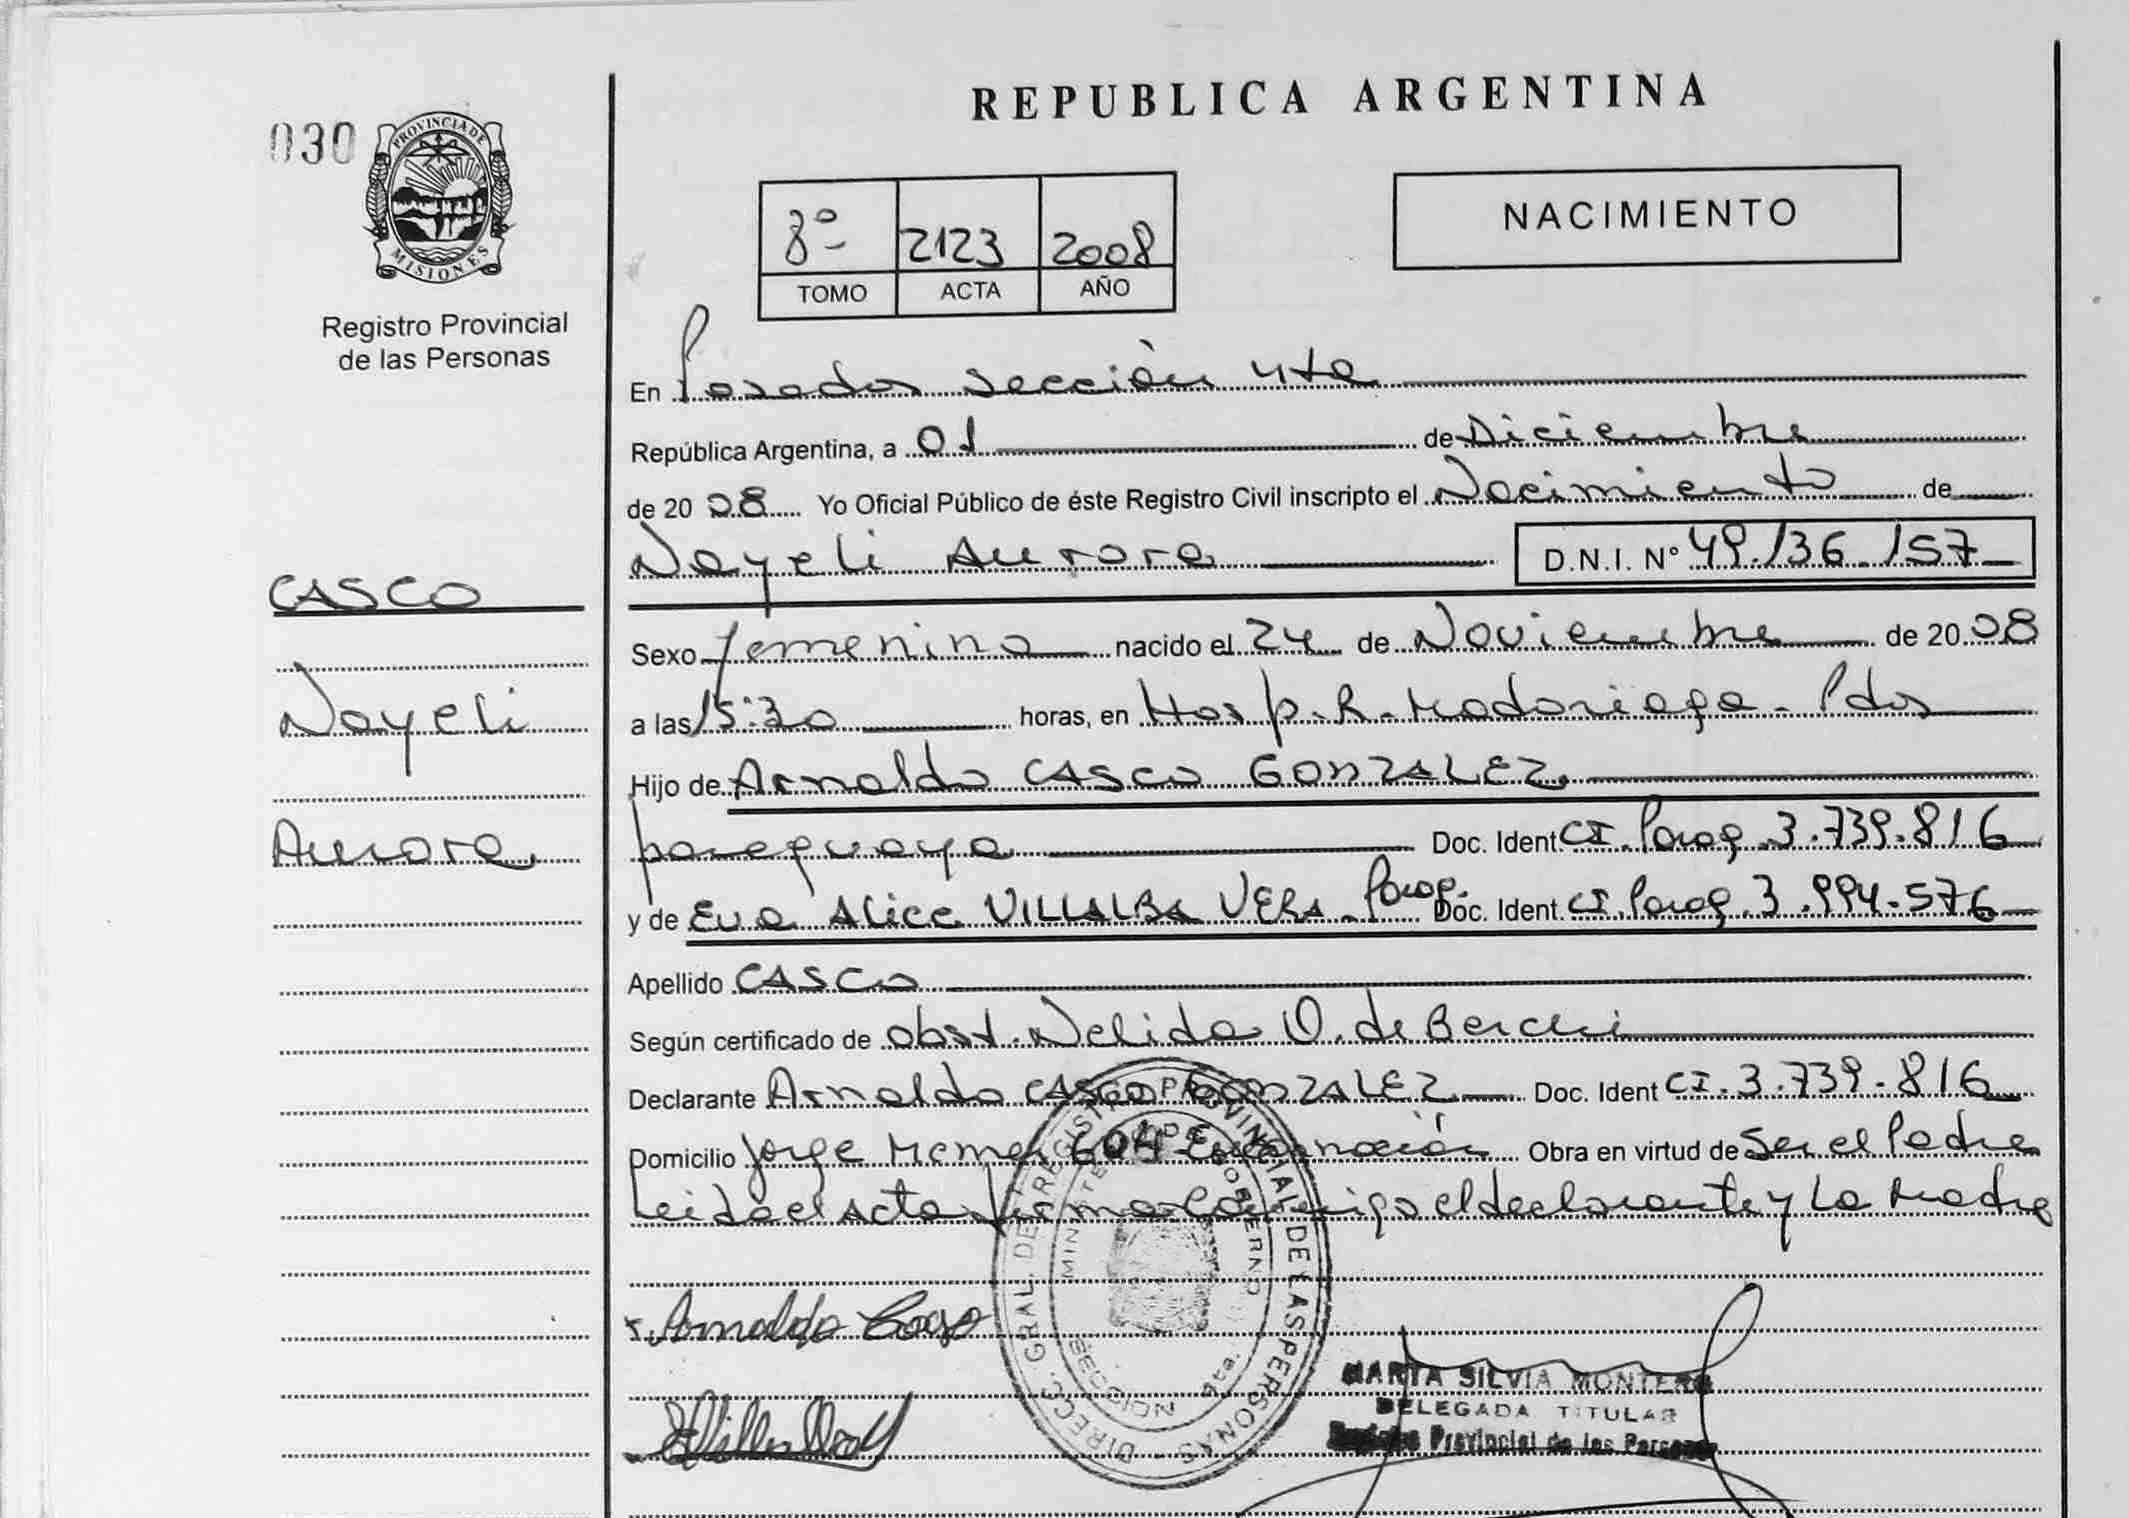 REPUBLICA ARGENTINA
030
PROVINCIA DE MISIONES
Registro Provincial
de las Personas
8º 2123 2008
TOMO ACTA AÑO
NACIMIENTO
En Posadas sección 4ta
República Argentina, a 01 de Diciembre
de 2008 Yo Oficial Público de éste Registro Civil inscripto el Nacimiento de
Nayeli Aurora D.N.I. Nº 49.136.157
CASCO
Nayeli
Aurora
Sexo femenino nacido el 24 de Noviembre de 2008
a las 15:30 horas, en Hosp. R. Madariaga - Pdas
Hijo de Arnaldo CASCO GONZALEZ
paraguaya Doc. Ident. CI. Parag. 3.739.816
y de Eva Alice VILLALBA VERA - Parag. Doc. Ident. CI. Parag. 3.994.576
Apellido CASCO
Según certificado de obst. Nelida O. de Berchi
Declarante Arnaldo CASCO GONZALEZ Doc. Ident CI. 3.739.816
Domicilio Jorge Encarnación Obra en virtud de Ser el Padre
Leida el Acta firma conmigo el declarante y La Madre
Arnaldo Casco
DIRECC. GRAL. DE REGISTRO PROVINCIAL DE LAS PERSONAS
MINISTERIO DE GOBIERNO
SECCION 4ta.
MARTA SILVIA MONTERO
DELEGADA TITULAR
Registro Provincial de las Personas